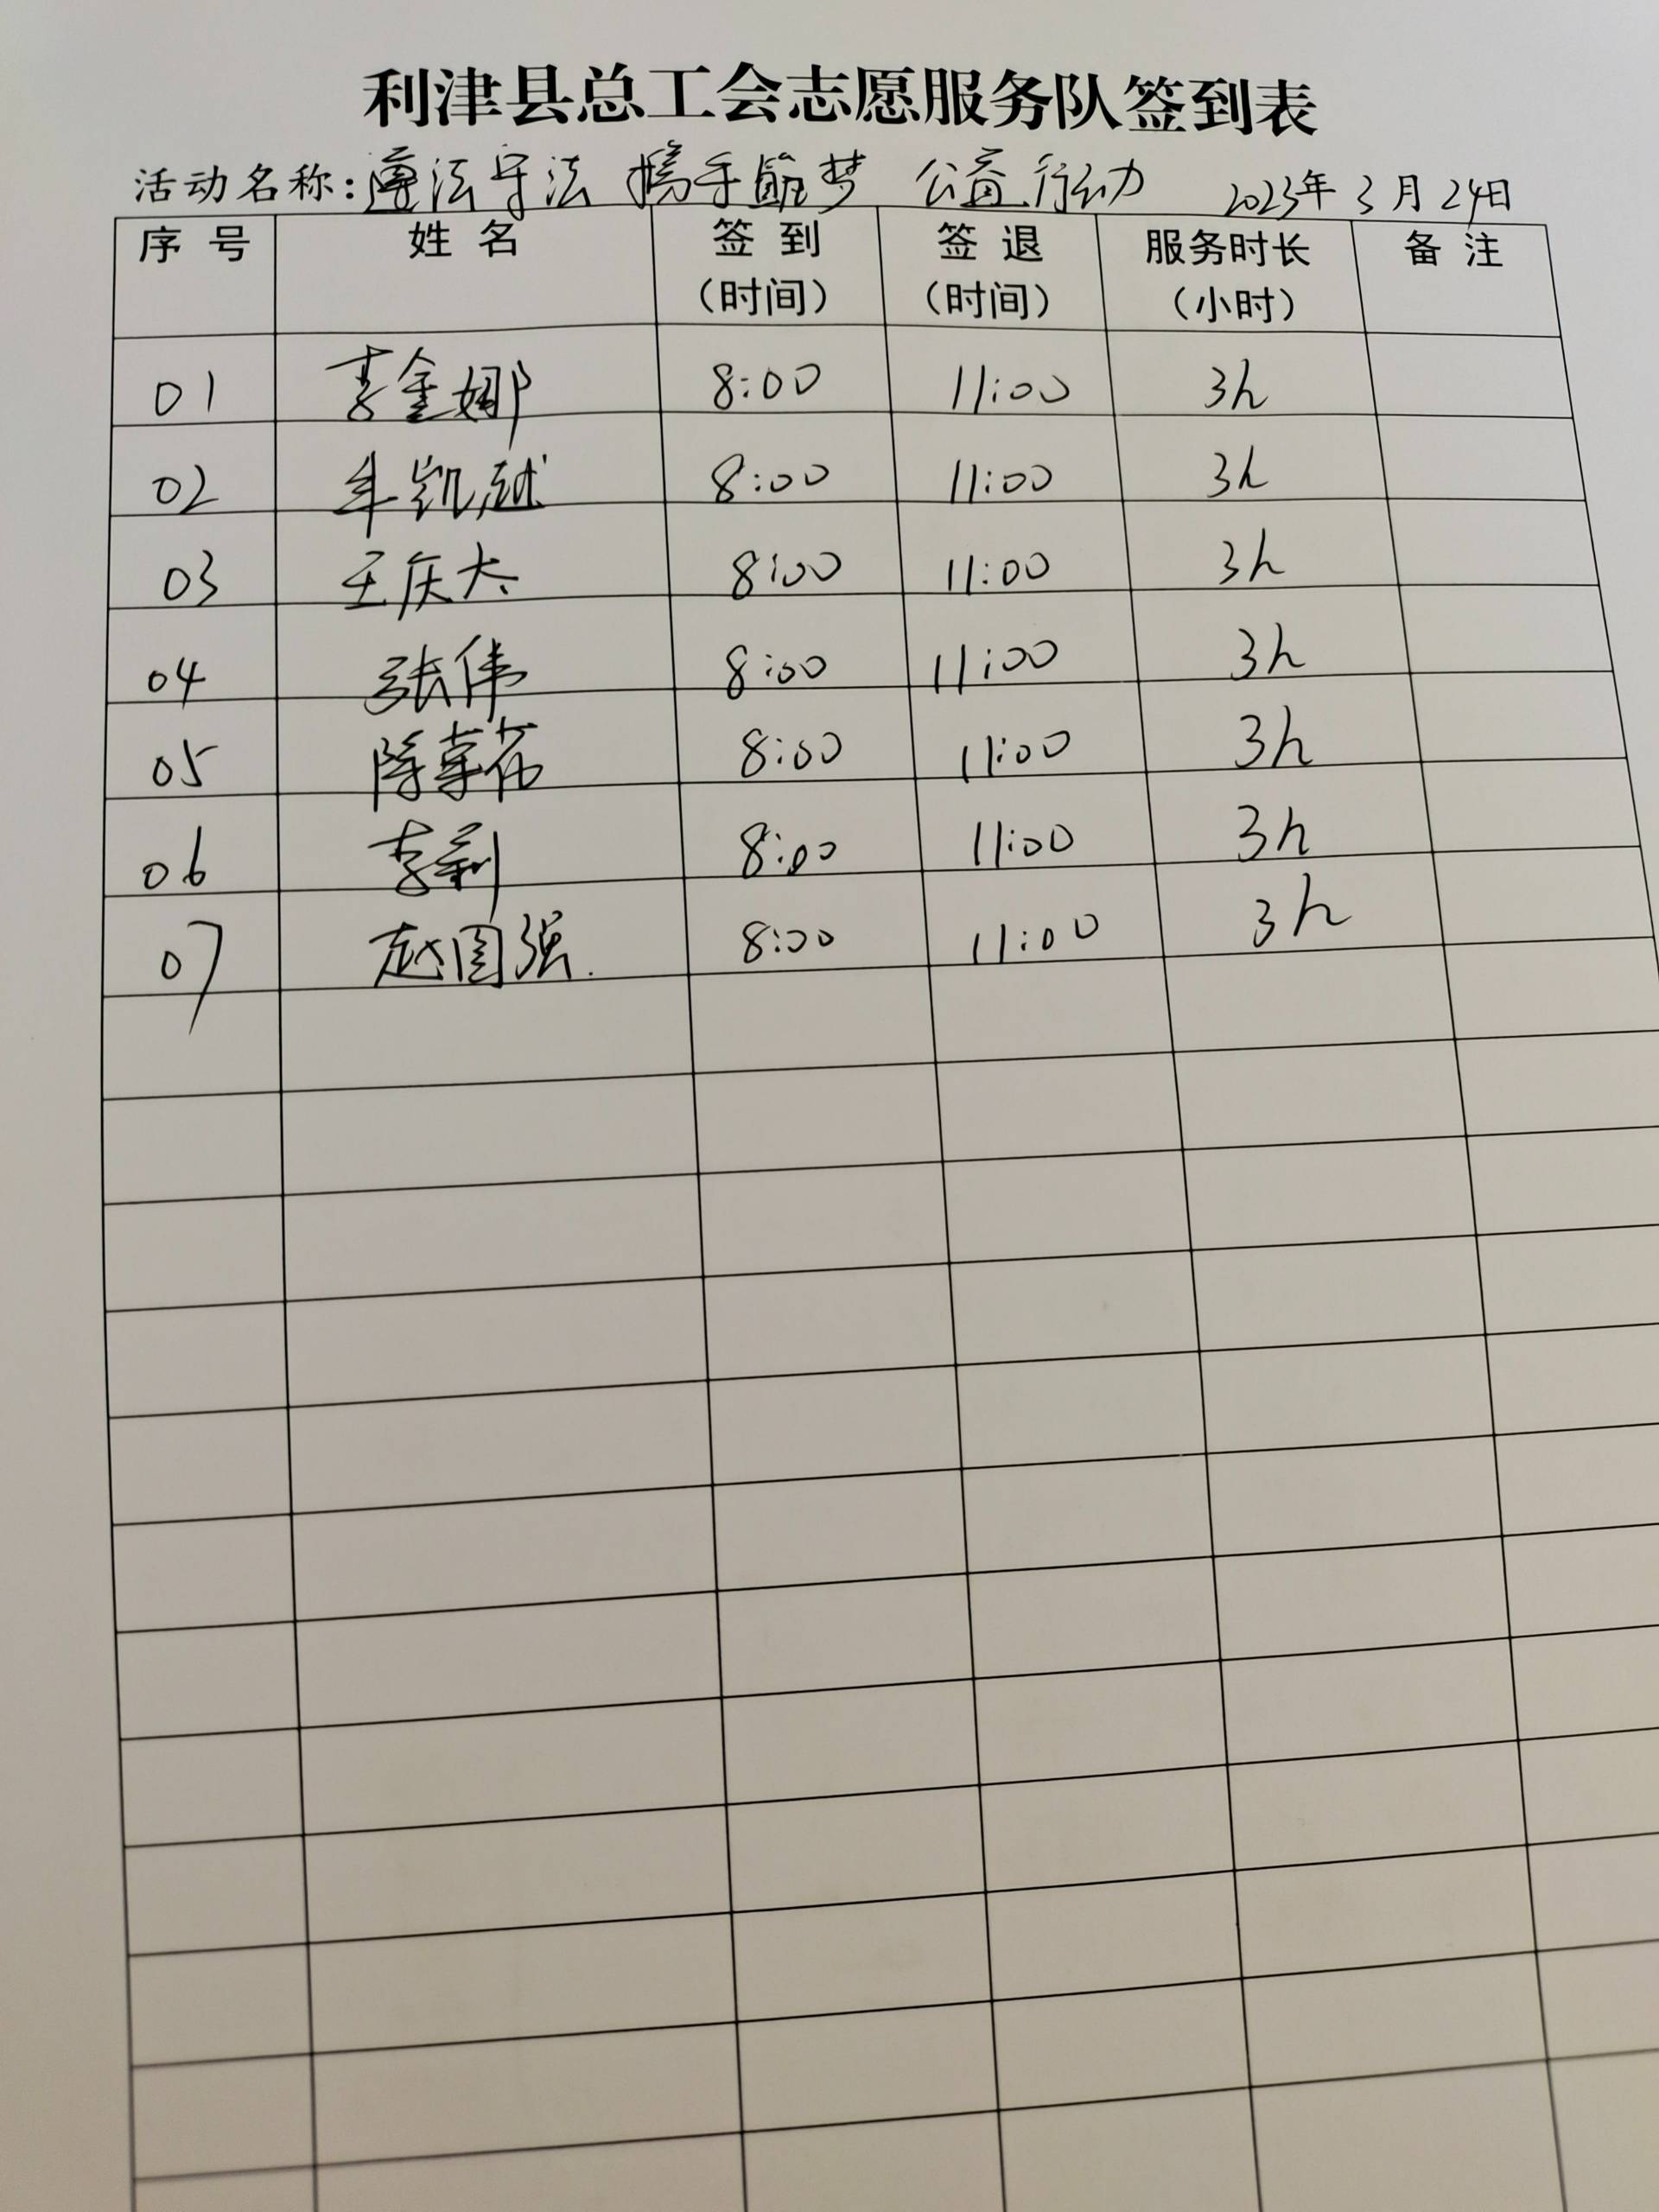 利津县总工会志愿服务队签到表
活动名称:遵法守法 携手筑梦 公益行动 2023年3月24日
序号 姓名 签到 签退 服务时长 备注
(时间) (时间) (小时)
01 李金娜 8:00 11:00 3h
02 牟凯越 8:00 11:00 3h
03 王庆太 8:00 11:00 3h
04 张伟 8:00 11:00 3h
05 8:00 11:00 3h
06 李莉 8:00 11:00 3h
07 赵国强. 8:00 11:00 3h